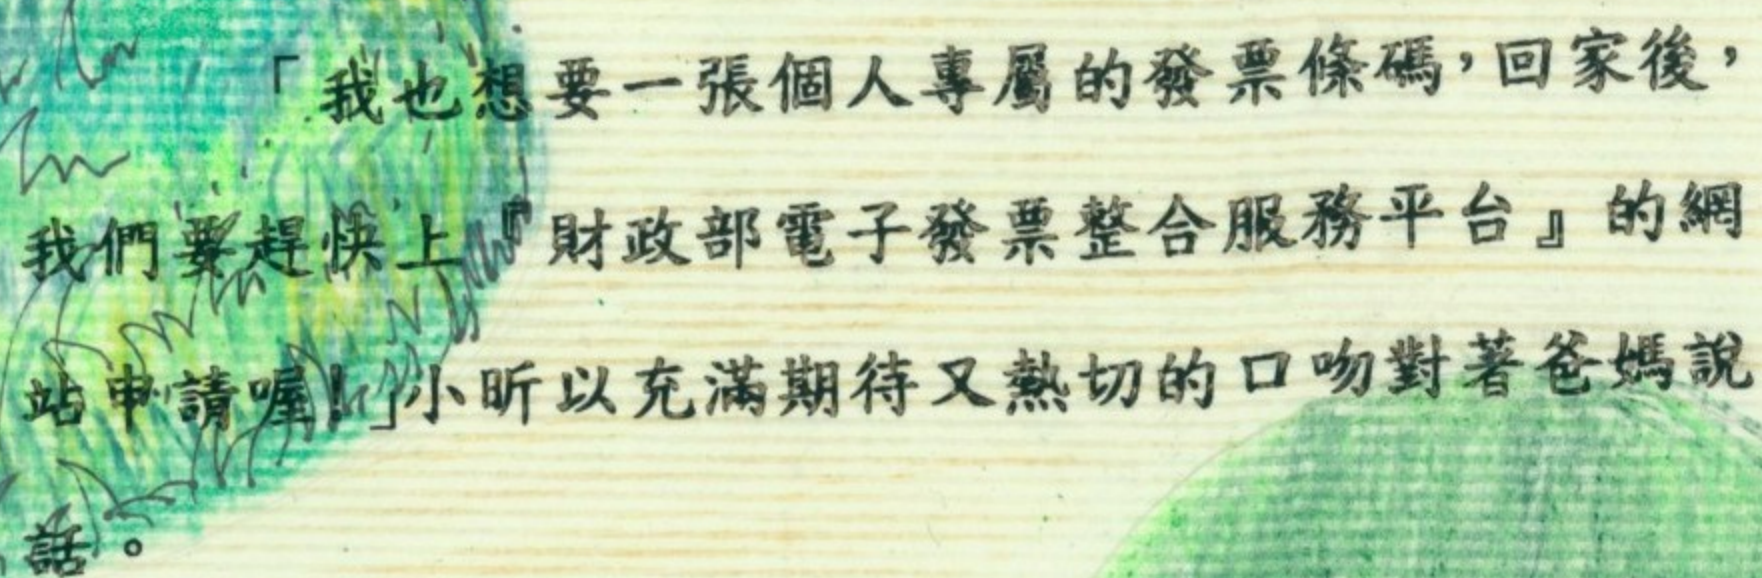 「我也想要一張個人專屬的發票條碼，回家後，
我們要趕快上『財政部電子發票整合服務平台』的網
站申請喔！」小昕以充滿期待又熱切的口吻對著爸媽說
話。